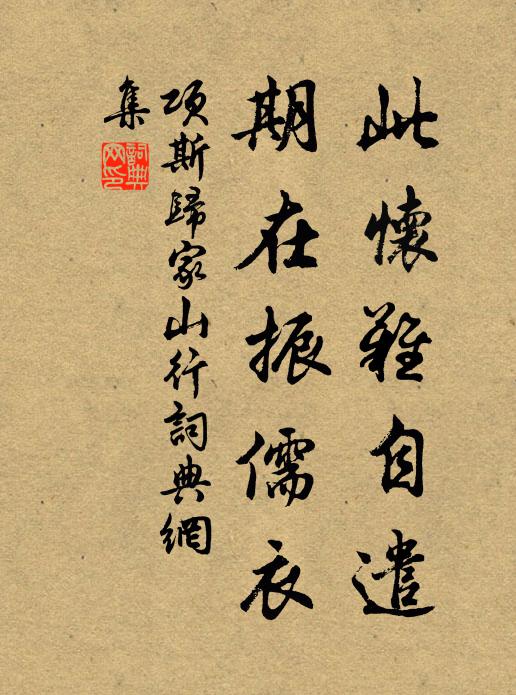 此懷難自遣
期在振儒衣
項斯歸家山行詞典網
集
詞典網印